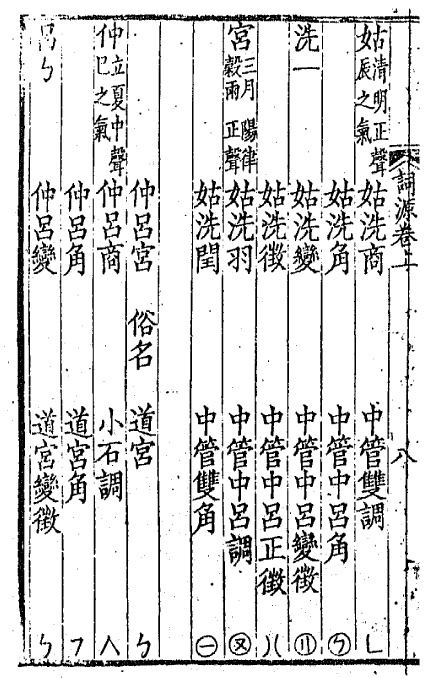 詞源卷上 八
姑 清明正聲 辰之氣 姑洗商 中管雙調 ㄴ
姑洗角 中管中呂角
洗 一 姑洗變 中管中呂變徵
姑洗徵 中管中呂正徵
宮 三月陽律 穀雨正聲 姑洗羽 中管中呂調
姑洗閏 中管雙角 ㊀
仲呂宮 俗名 道宮 ㄅ
仲 立夏中聲 巳之氣 仲呂商 小石調 人
仲呂角 道宮角 ㄱ
呂 ㄅ 仲呂變 道宮變徵 ㄅ